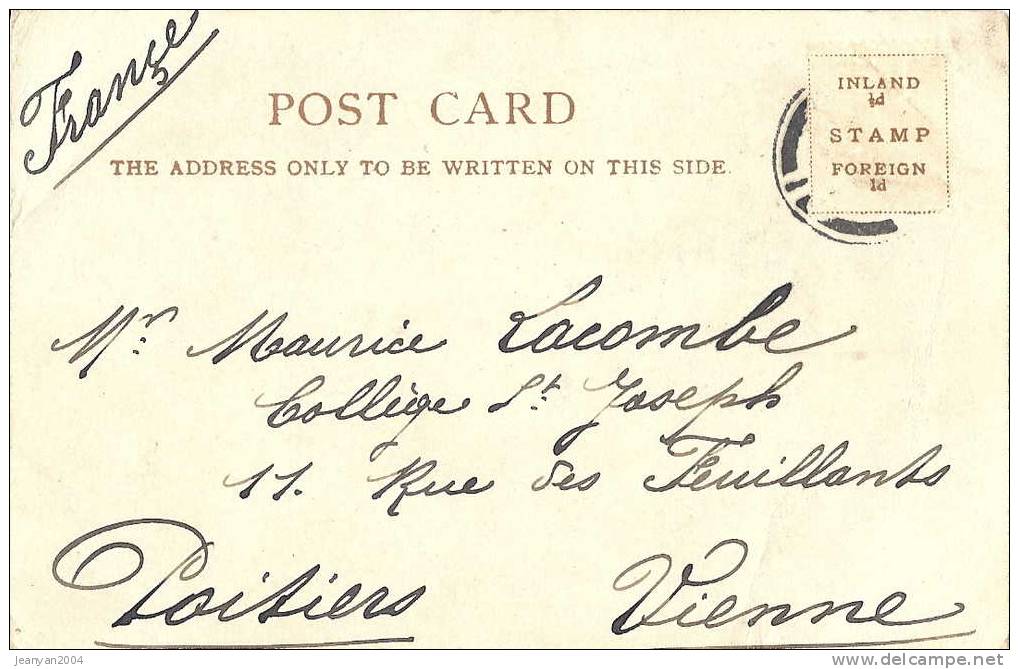 France
POST CARD
THE ADDRESS ONLY TO BE WRITTEN ON THIS SIDE.
INLAND
½d
STAMP
FOREIGN
1d
Mr. Maurice Lacombe
Collège St. Joseph
11. Rue des Feuillants
Poitiers Vienne
jeanyan2004
delcampe.net